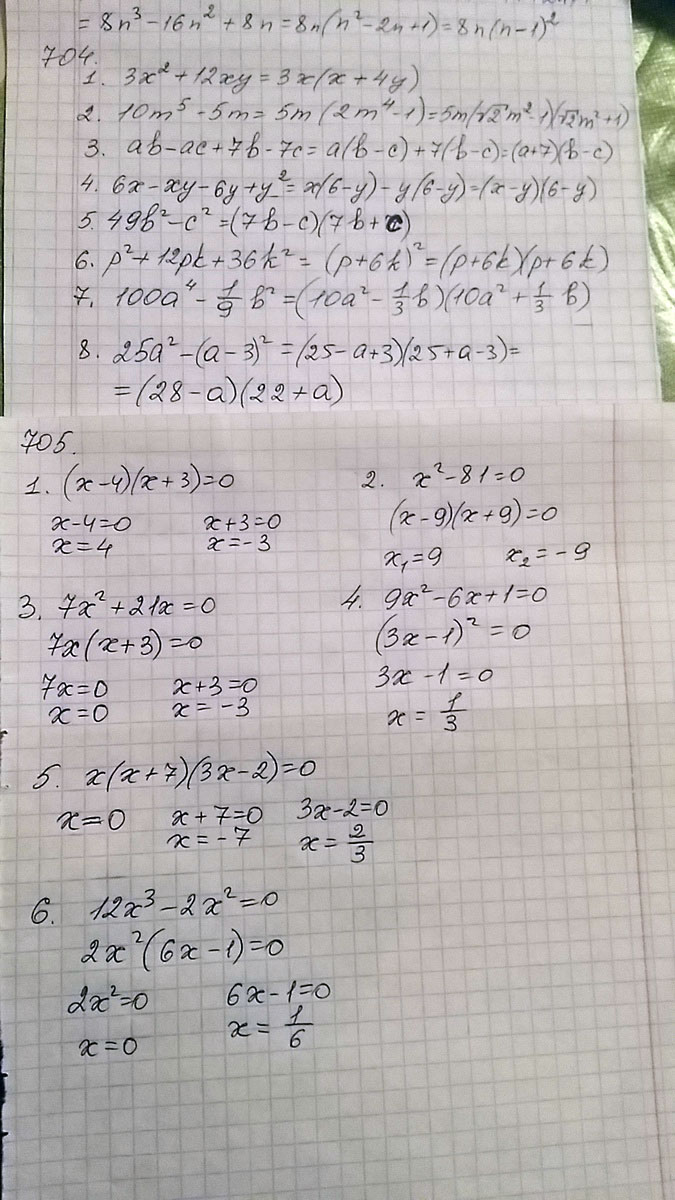 = 8n³ - 16n² + 8n = 8n(n² - 2n + 1) = 8n(n - 1)²
704.
1. 3x² + 12xy = 3x(x + 4y)
2. 10m⁵ - 5m = 5m(2m⁴ - 1) = 5m(√2 m² - 1)(√2 m² + 1)
3. ab - ac + 7b - 7c = a(b - c) + 7(b - c) = (a + 7)(b - c)
4. 6x - xy - 6y + y² = x(6 - y) - y(6 - y) = (x - y)(6 - y)
5. 49b² - c² = (7b - c)(7b + c)
6. p² + 12pk + 36k² = (p + 6k)² = (p + 6k)(p + 6k)
7. 100a⁴ - 1/9 b² = (10a² - 1/3 b)(10a² + 1/3 b)
8. 25a² - (a - 3)² = (25 - a + 3)(25 + a - 3) =
= (28 - a)(22 + a)
705.
1. (x - 4)(x + 3) = 0
x - 4 = 0 x + 3 = 0
x = 4 x = -3
2. x² - 81 = 0
(x - 9)(x + 9) = 0
x₁ = 9 x₂ = -9
3. 7x² + 21x = 0
7x(x + 3) = 0
7x = 0 x + 3 = 0
x = 0 x = -3
4. 9x² - 6x + 1 = 0
(3x - 1)² = 0
3x - 1 = 0
x = 1/3
5. x(x + 7)(3x - 2) = 0
x = 0 x + 7 = 0 3x - 2 = 0
x = -7 x = 2/3
6. 12x³ - 2x² = 0
2x²(6x - 1) = 0
2x² = 0 6x - 1 = 0
x = 0 x = 1/6